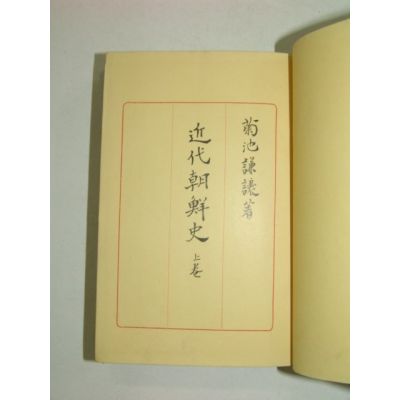 菊池謙譲著
近代朝鮮史
上巻